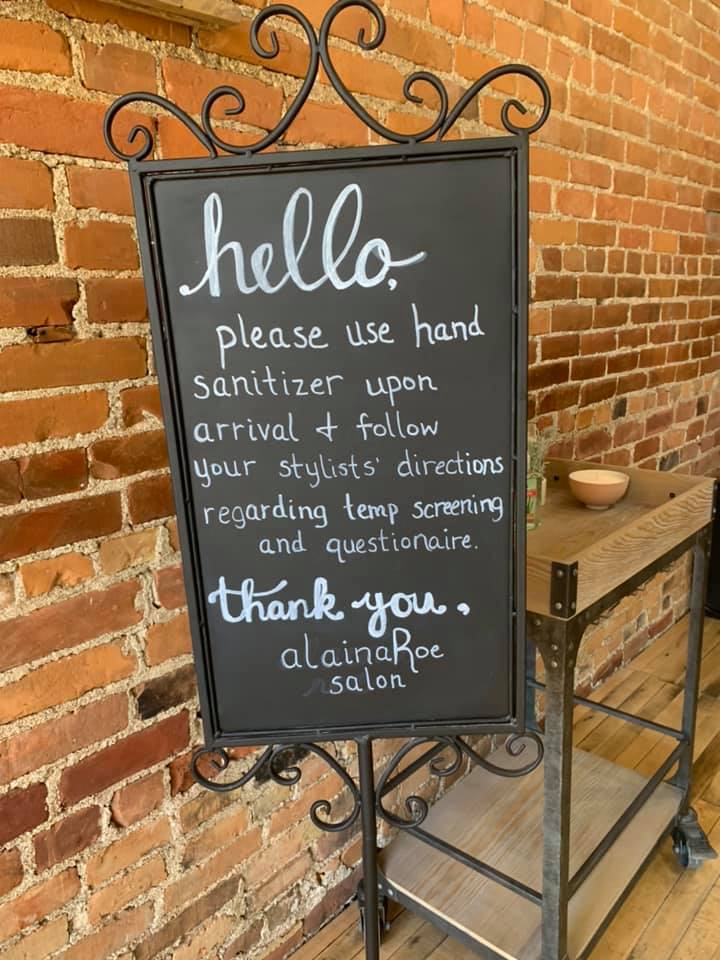 hello,
please use hand
sanitizer upon
arrival & follow
your stylists' directions
regarding temp screening
and questionaire.
thank you,
alainaRoe
salon